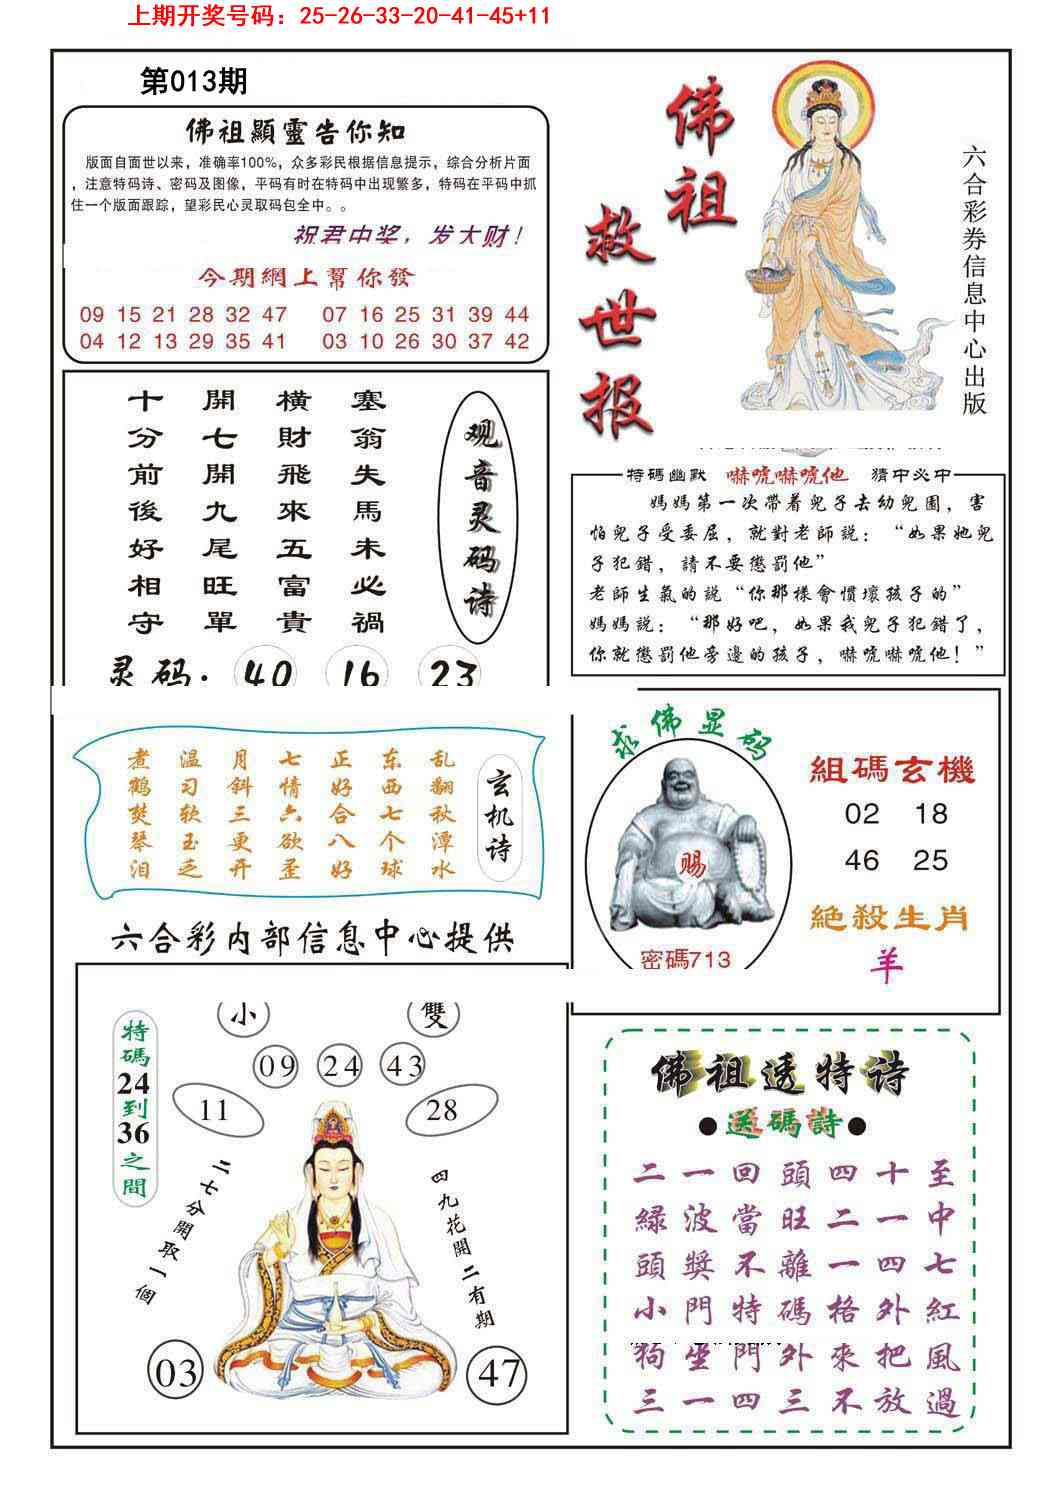 上期开奖号码：25-26-33-20-41-45+11
第013期
佛祖顯靈告你知
版面自面世以来，准确率100%，众多彩民根据信息提示，综合分析片面
，注意特码诗、密码及图像，平码有时在特码中出现繁多，特码在平码中抓
住一个版面跟踪，望彩民心灵取码包全中。。
祝君中奖，发大财！
今期網上幫你發
09 15 21 28 32 47 07 16 25 31 39 44
04 12 13 29 35 41 03 10 26 30 37 42
佛祖
救世报
六合彩券信息中心出版
观音灵码诗
塞翁失馬未必禍
橫財飛來五富貴
開七開九尾旺單
十分前後好相守
灵码：40 16 23
特碼幽默 嚇唬嚇唬他 猜中必中
媽媽第一次帶着兒子去幼兒園，害
怕兒子受委屈，就對老師説：“如果她兒
子犯錯，請不要懲罰他”
老師生氣的説“你那樣會慣壞孩子的”
媽媽説：“那好吧，如果我兒子犯錯了，
你就懲罰他旁邊的孩子，嚇唬嚇唬他！”
玄机诗
乱翻秋潭水
东西七个球
正好合八好
七情六欲歪
月斜三更开
温习软玉乏
煮鹤焚琴泪
求佛显码
赐
密碼713
組碼玄機
02 18
46 25
絕殺生肖
羊
六合彩内部信息中心提供
特碼24到36之間
小 雙
09 24 43
11 28
二七分開取一個
四九花開二有期
03 47
佛祖透特诗
●送碼詩●
二一回頭四十至
緑波當旺二一中
頭獎不離一四七
小門特碼格外紅
狗坐門外來把風
三一四三不放過